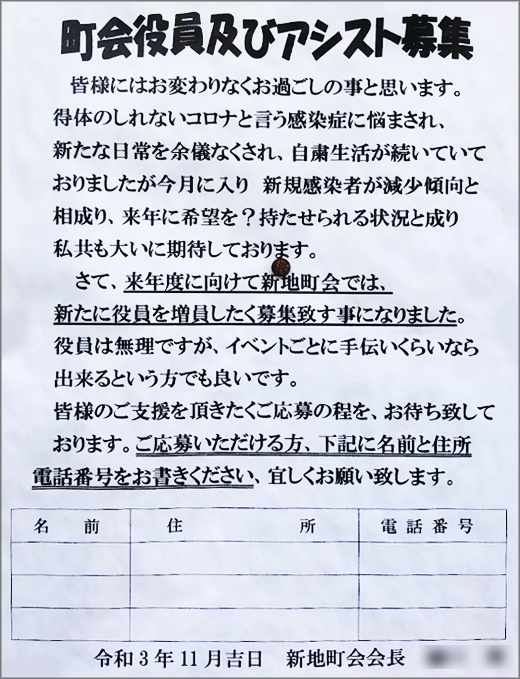 町会役員及びアシスト募集
皆様にはお変わりなくお過ごしの事と思います。
得体のしれないコロナと言う感染症に悩まされ、
新たな日常を余儀なくされ、自粛生活が続いていて
おりましたが今月に入り 新規感染者が減少傾向と
相成り、来年に希望を？持たせられる状況と成り
私共も大いに期待しております。
さて、来年度に向けて新地町会では、
新たに役員を増員したく募集致す事になりました。
役員は無理ですが、イベントごとに手伝いくらいなら
出来るという方でも良いです。
皆様のご支援を頂きたくご応募の程を、お待ち致して
おります。ご応募いただける方、下記に名前と住所
電話番号をお書きください、宜しくお願い致します。
名 前 住 所 電話番号
令和3年11月吉日 新地町会会長